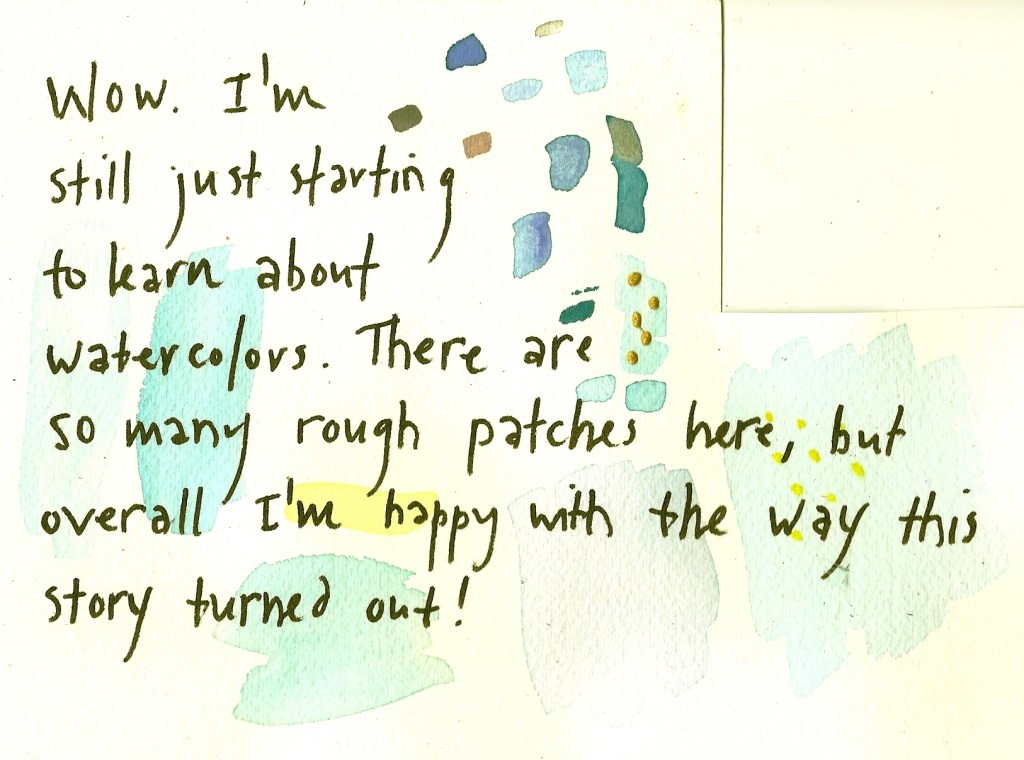 Wow. I'm
still just starting
to learn about
watercolors. There are
so many rough patches here, but
overall I'm happy with the way this
story turned out!